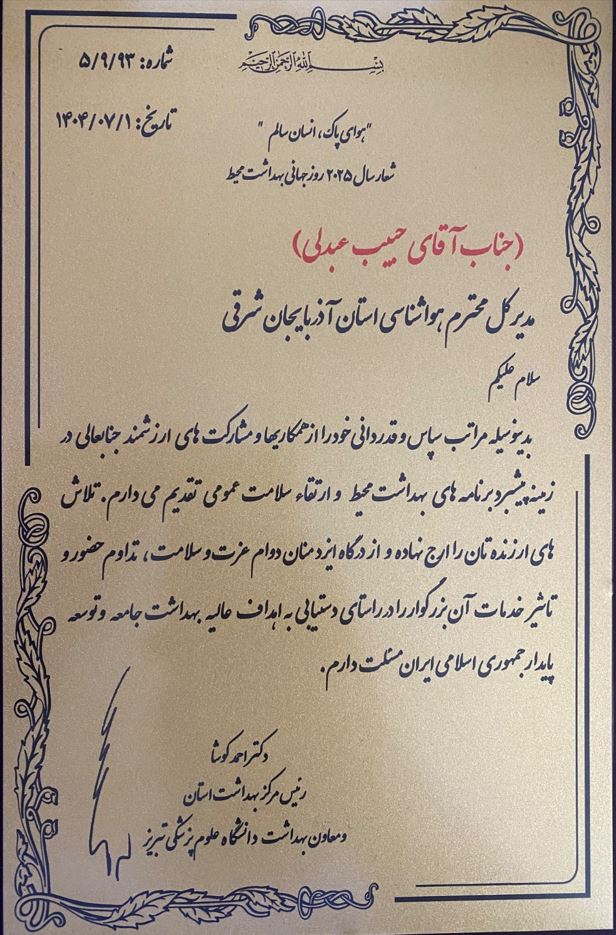 بسم الله الرحمن الرحیم
شماره: ۵/۹/۹۳
تاریخ: ۱۴۰۴/۰۷/۱
"هوای پاک، انسان سالم"
شعار سال ۲۰۲۵ روز جهانی بهداشت محیط
(جناب آقای حبیب عبدلی)
مدیر کل محترم هواشناسی استان آذربایجان شرقی
سلام علیکم
بدینوسیله مراتب سپاس و قدردانی خود را از همکاریها و مشارکت های ارزشمند جنابعالی در
زمینه پیشبرد برنامه های بهداشت محیط و ارتقاء سلامت عمومی تقدیم می دارم. تلاش
های ارزنده تان را ارج نهاده و از درگاه ایزد منان دوام عزت و سلامت، تداوم حضور و
تاثیر خدمات آن بزرگوار را در راستای دستیابی به اهداف عالیه بهداشت جامعه و توسعه
پایدار جمهوری اسلامی ایران مسئلت دارم.
دکتر احمد کوشا
رئیس مرکز بهداشت استان
و معاون بهداشت دانشگاه علوم پزشکی تبریز